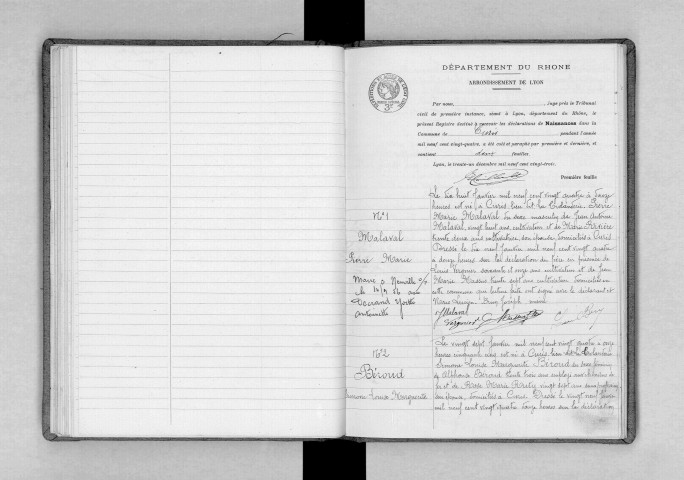 DÉPARTEMENT DU RHONE
ARRONDISSEMENT DE LYON
Par nous, Juge près le Tribunal
civil de première instance, séant à Lyon, département du Rhône, le
présent Registre destiné à recevoir les déclarations de Naissances dans la
Commune de Curis pendant l'année
mil neuf cent vingt-quatre, a été coté et paraphé par première et dernière, et
contient deux feuilles
Lyon, le trente-un décembre mil neuf cent vingt-trois.
Première feuille
N°1
Malaval
Pierre Marie
Marié à Neuville s/S
le
antoinette
Le dix huit Janvier mil neuf cent vingt quatre à
heures est né à Curis lieu dit la Pierre
Marie Malaval du sexe masculin de Jean Antoine
Malaval, vingt huit ans, cultivateur et de Marie
trente deux ans cultivatrice, son épouse, domiciliés à Curis
Dressé le dix neuf Janvier mil neuf cent vingt quatre
à douze heures sur la déclaration du père en présence de
Louis Vergnier soixante et onze ans cultivateur et de Jean
Marie trente sept ans cultivateur domiciliés en
cette commune qui lecture faite ont signé avec le déclarant et
Nous Joseph maire
Malaval
Vergnier
N°2
Béroud
Simone Louise Marguerite
Le vingt sept Janvier mil neuf cent vingt quatre à onze
heures cinquante est né à Curis lieu dit
Simone Louise Marguerite Béroud du sexe féminin
de Alphonse Béroud trente trois ans employé aux chemins de
fer et de Rose Marie vingt sept ans sans profession
son épouse, domiciliés à Curis Dressé le vingt neuf Janvier
mil neuf cent vingt quatre heures sur la déclaration